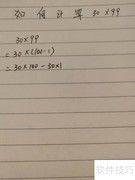 如何计算30×99
30×99
=30×(100-1)
=30×100-30×1
软件技巧